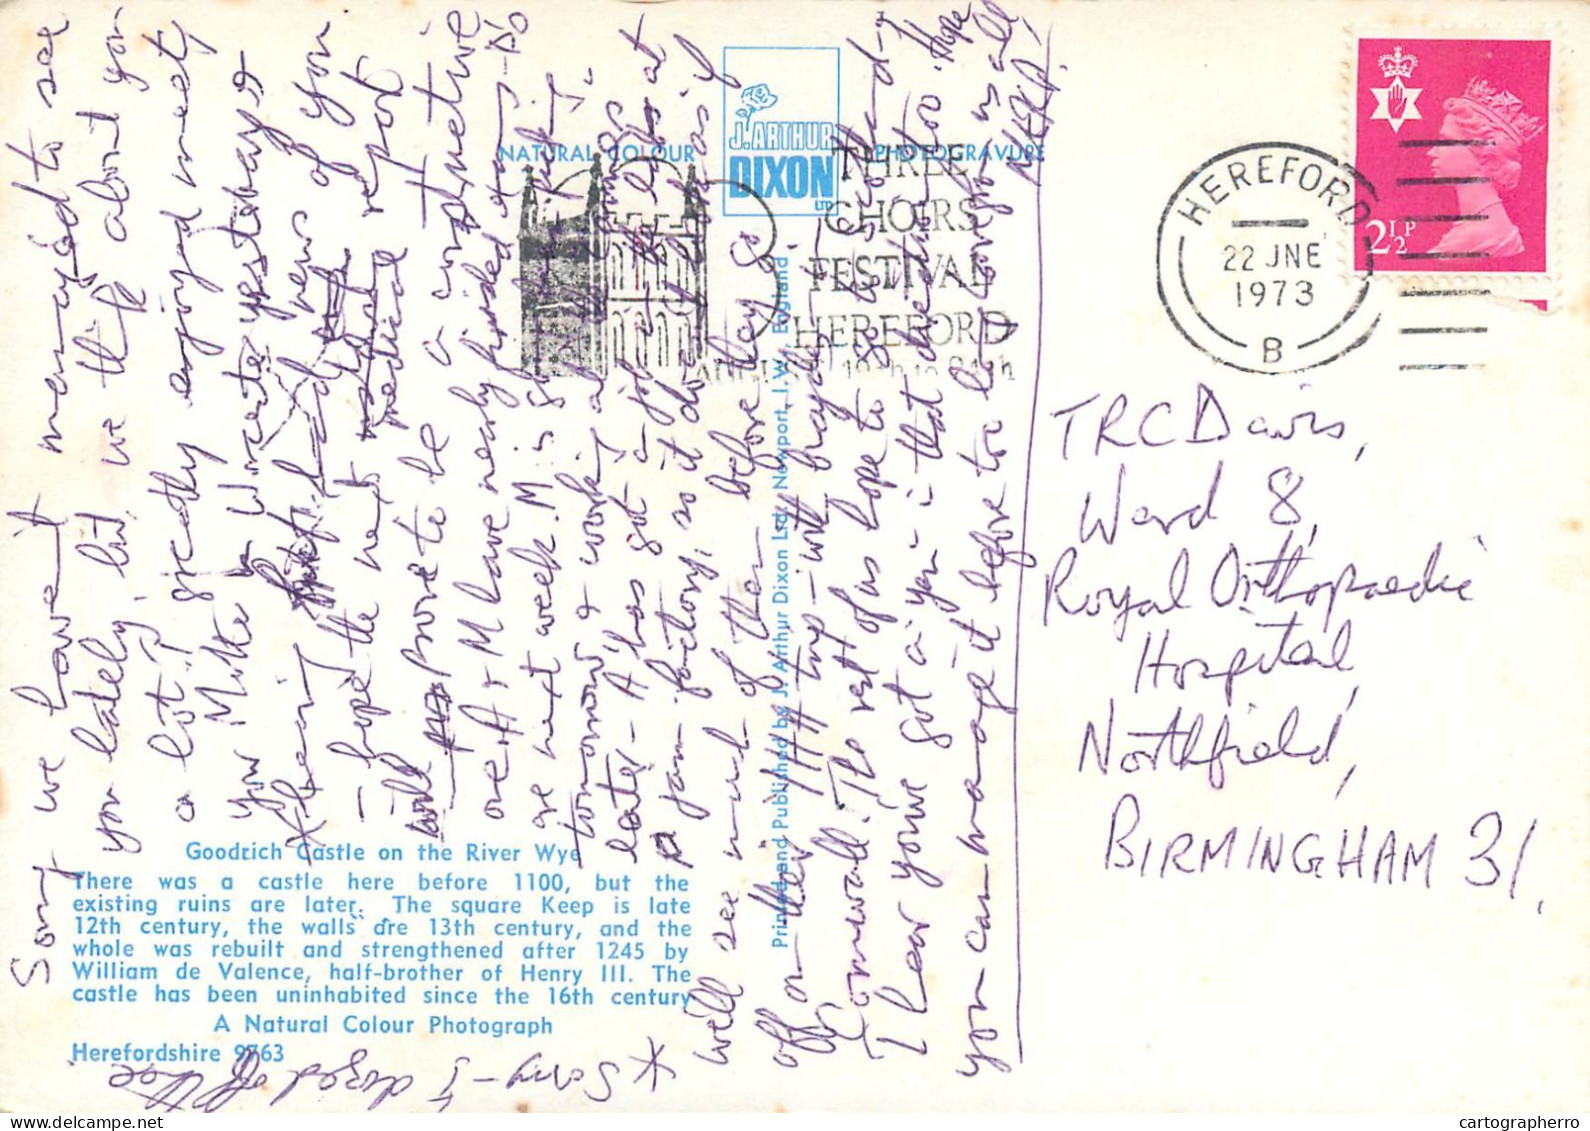 Sorry we haven't managed to see
you lately, but we think about you
a lot! I greatly enjoyed meeting
your Mike in Worcester yesterday &
hearing had news of you
- hope the next medical report
will prove to be a constructive
one. A & M have nearly finished exams - so
are next week. M is
tomorrow & working at
later - A has got a job at the
jam factory, so it doesn't look as if
we'll see much of them before they go
off on their trip - with
Cornwall! The rest of us hope to go to Scotland -
I hear you've got a yen in that direction too. Hope
you can manage it before too long. Love from us all
* Sorry - I dozed off there
NATURAL COLOUR
PHOTOGRAVURE
J. ARTHUR
DIXON
LTD
Printed and Published by J. Arthur Dixon Ltd., Newport, I.W., England
THREE
CHOIRS
FESTIVAL
HEREFORD
HEREFORD
22 JNE
1973
B
2½P
TRC Davis,
Ward 8,
Royal Orthopaedic
Hospital,
Northfield,
BIRMINGHAM 31.
Goodrich Castle on the River Wye
There was a castle here before 1100, but the
existing ruins are later. The square Keep is late
12th century, the walls are 13th century, and the
whole was rebuilt and strengthened after 1245 by
William de Valence, half-brother of Henry III. The
castle has been uninhabited since the 16th century
A Natural Colour Photograph
Herefordshire 9763
cartographerro